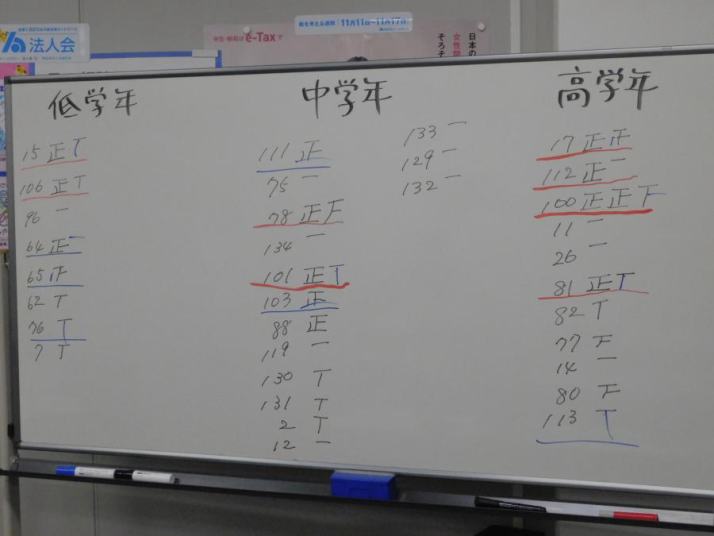 法人会
e-Taxで
税を考える週間 11月11日~11月17日
日本の
女性
そろそ
低学年
15 正T
106 正T
96 一
64 正一
65 正
62 T
76 T
7 T
中学年
111 正
75 一
78 正F
134 一
101 正T
103 正
88 正
119 一
130 T
131 T
2 T
12 一
133 一
129 一
132 一
高学年
17 正正
112 正一
100 正正下
11 一
26 一
81 正T
82 T
77 下
14 一
80 下
113 T